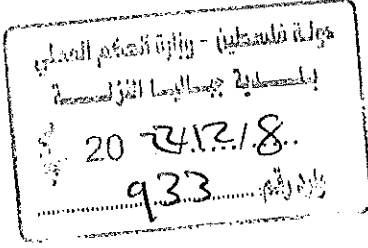 دولة فلسطين - وزارة الحكم المحلي
بلدية جباليا النزلة
20 22/12/8
وارد رقم 933